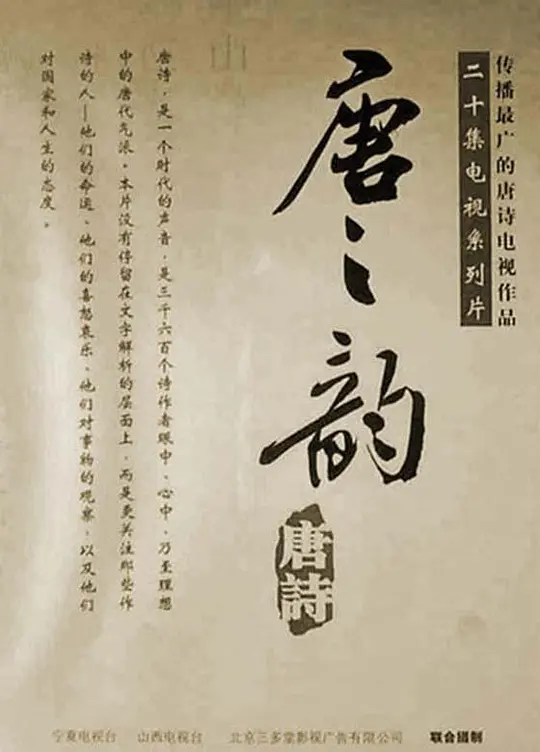 传播最广的唐诗电视作品
二十集电视系列片
唐之韵
唐詩
唐诗，是一个时代的声音，是三千六百个诗作者眼中、心中、乃至理想
中的唐代气派。本片没有停留在文字解析的层面上，而是更关注那些作
诗的人—他们的命运、他们的喜怒哀乐、他们对事物的观察，以及他们
对国家和人生的态度。
宁夏电视台 山西电视台 北京三多堂影视广告有限公司 联合摄制